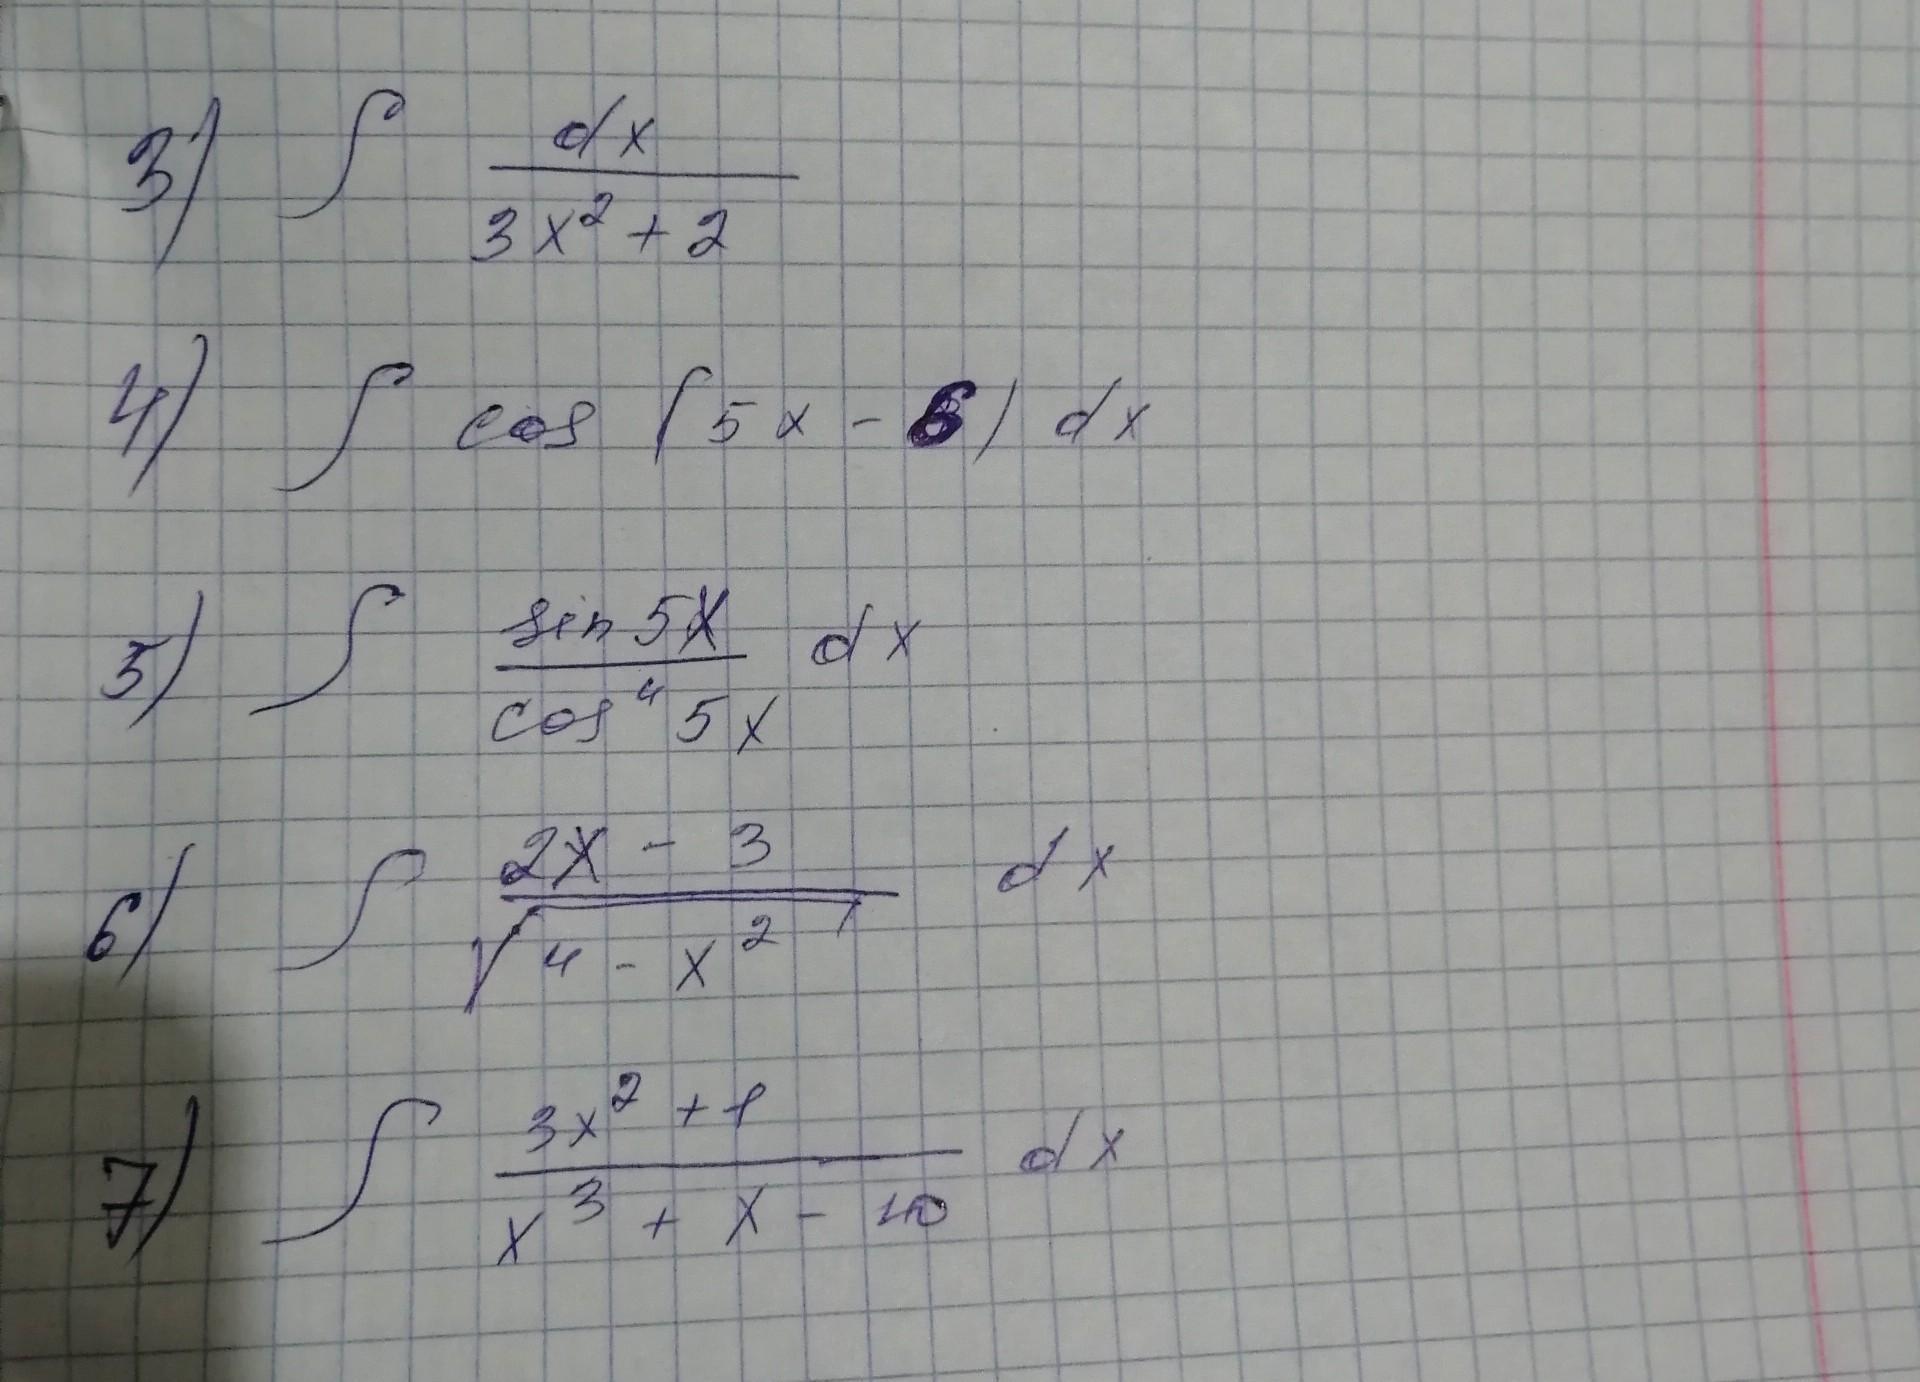 3) ∫ dx / (3x² + 2)
4) ∫ cos (5x - 6) dx
5) ∫ sin 5x / cos⁴ 5x dx
6) ∫ (2x - 3) / √(4 - x²) dx
7) ∫ (3x² + 1) / (x³ + x - 10) dx